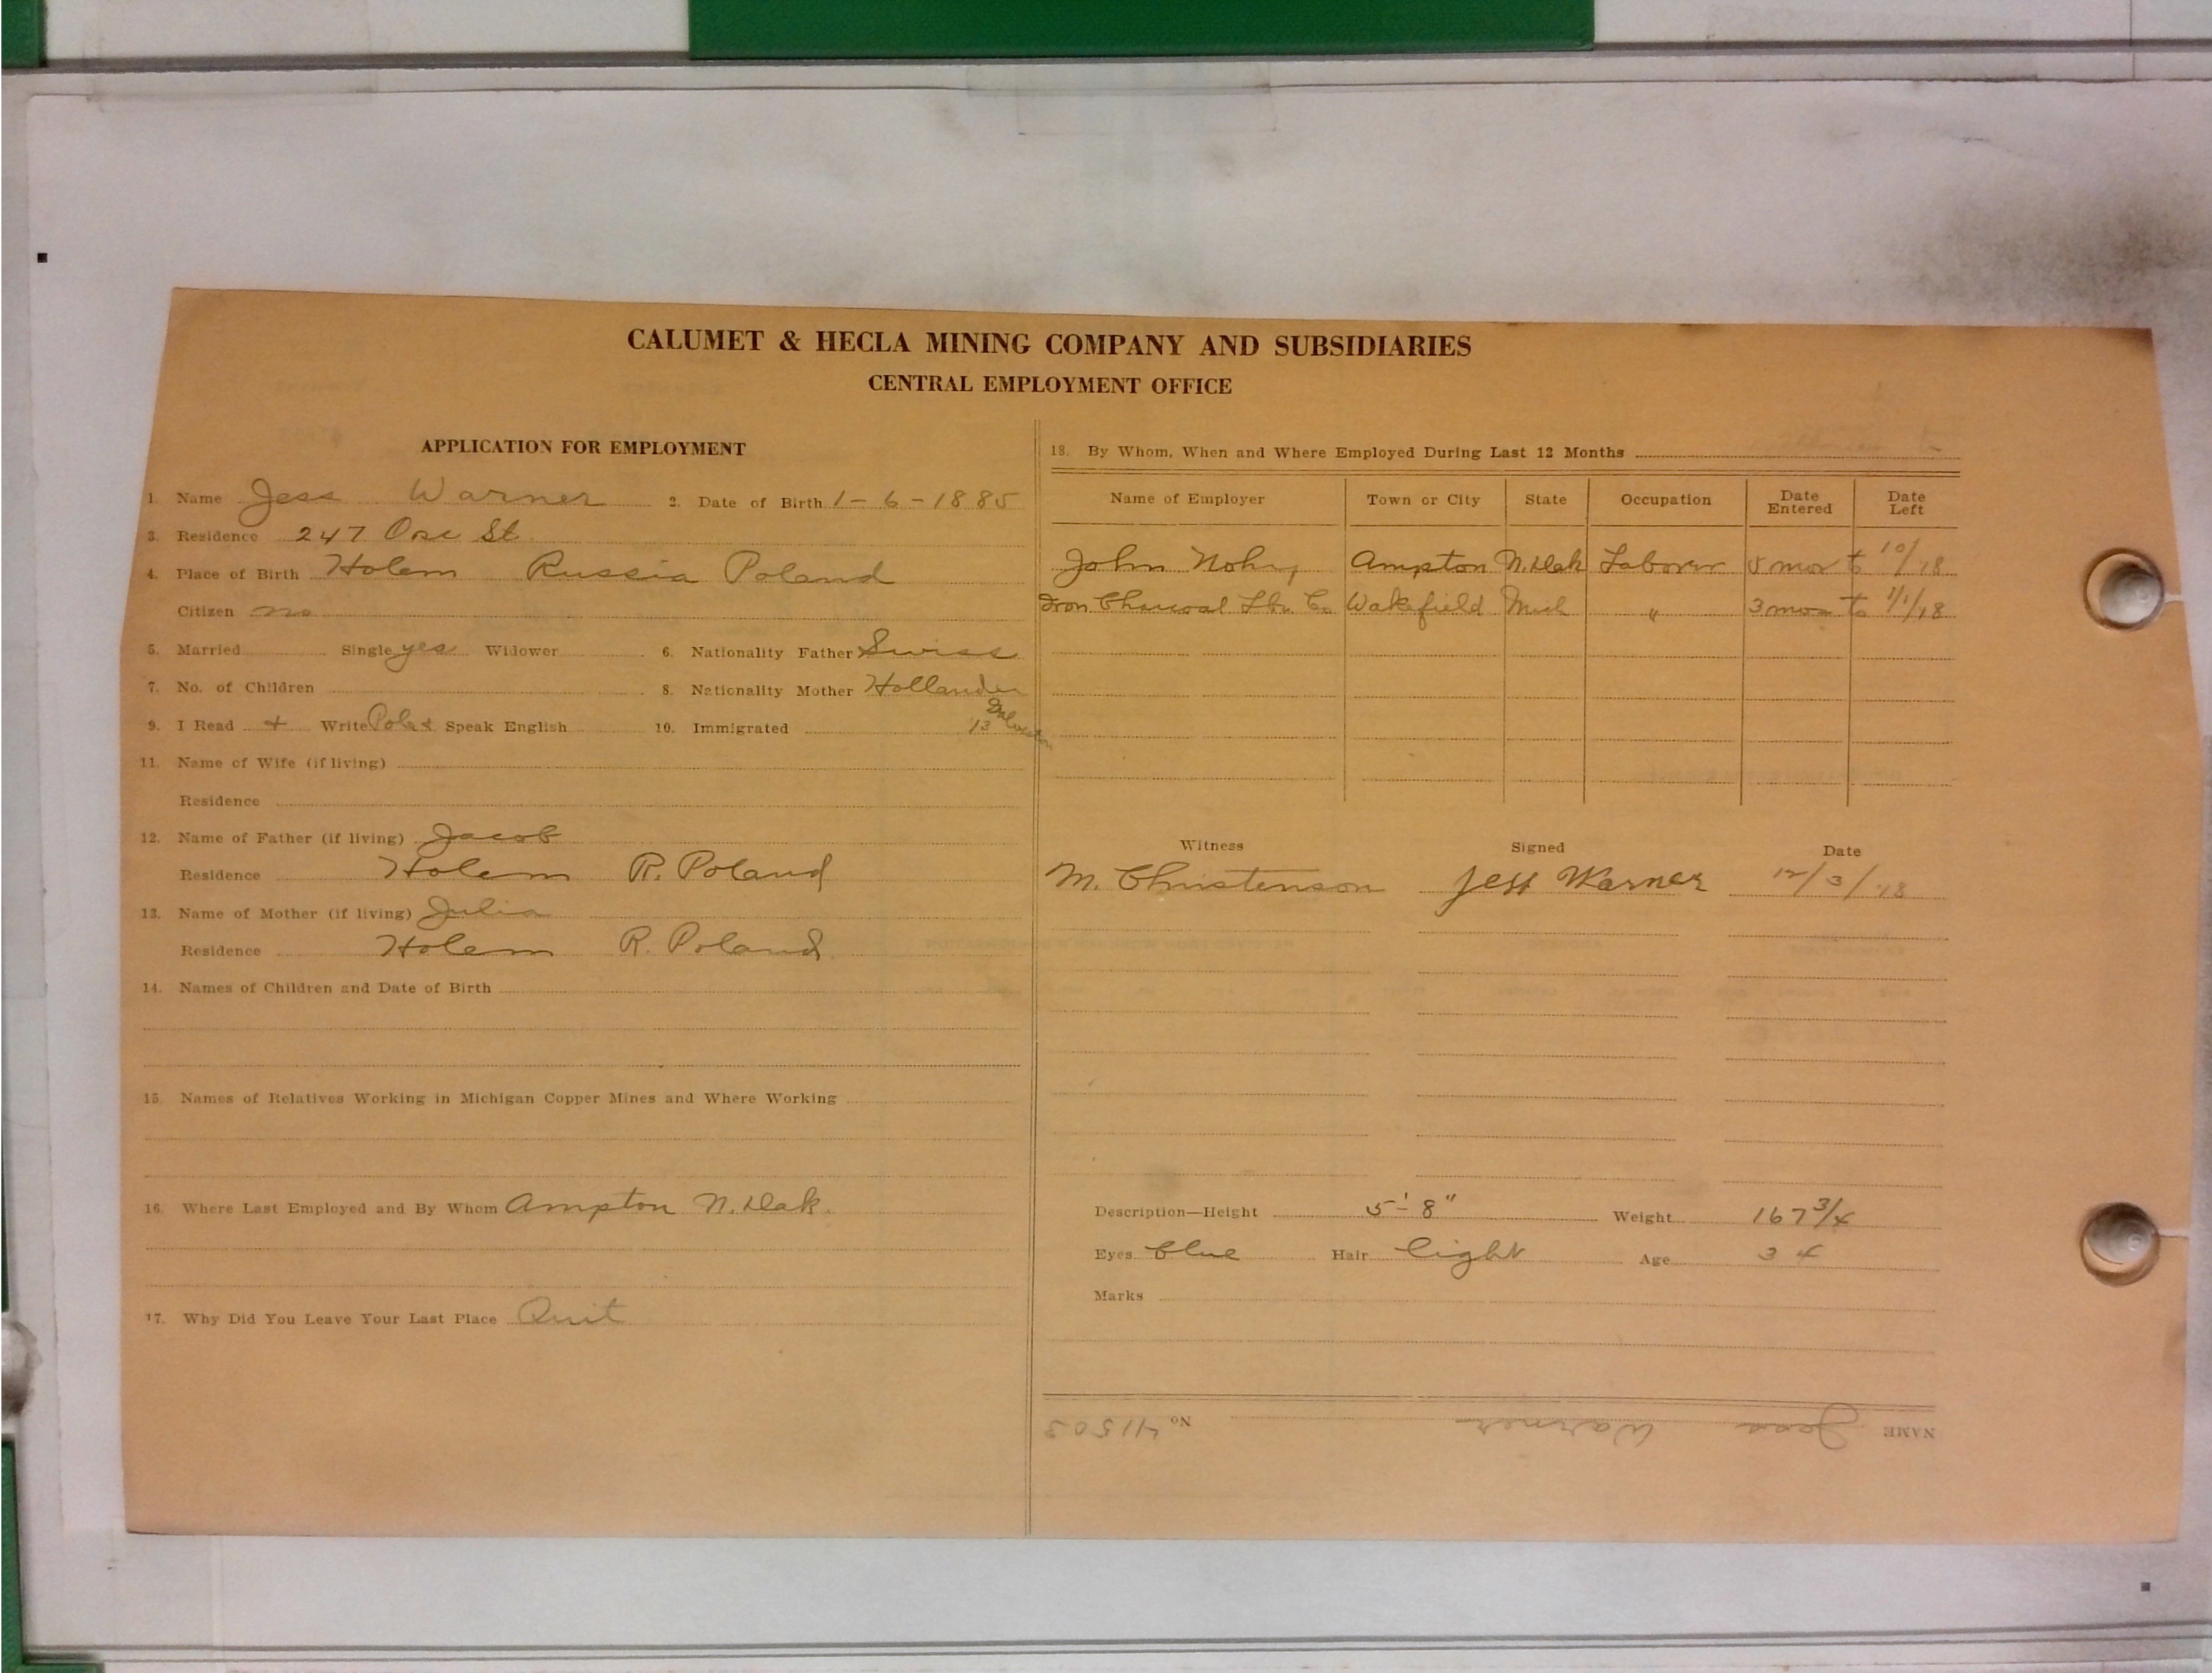 CALUMET & HECLA MINING COMPANY AND SUBSIDIARIES
CENTRAL EMPLOYMENT OFFICE
APPLICATION FOR EMPLOYMENT
1. Name Jess Warner 2. Date of Birth 1-6-1885
3. Residence 247 St.
4. Place of Birth Holem Russia Poland
Citizen no
5. Married Single yes Widower 6. Nationality Father Swiss
7. No. of Children 8. Nationality Mother Hollander
9. I Read + Write Pole & Speak English 10. Immigrated '13
11. Name of Wife (if living)
Residence
12. Name of Father (if living) Jacob
Residence Holem R. Poland
13. Name of Mother (if living) Julia
Residence Holem R. Poland
14. Names of Children and Date of Birth
15. Names of Relatives Working in Michigan Copper Mines and Where Working
16. Where Last Employed and By Whom Ampton N. Dak.
17. Why Did You Leave Your Last Place Quit
18. By Whom, When and Where Employed During Last 12 Months
Name of Employer Town or City State Occupation Date Entered Date Left
John Ampton N. Dak Laborer mos to 10/18
Iron Charcoal Co Wakefield Mich " 3 mos to 1/1/18
Witness Signed Date
M. Christenson Jess Warner 12/3/18
Description—Height 5'-8" Weight 167 3/4
Eyes blue Hair light Age 34
Marks
NAME Jess Warner No. 41503